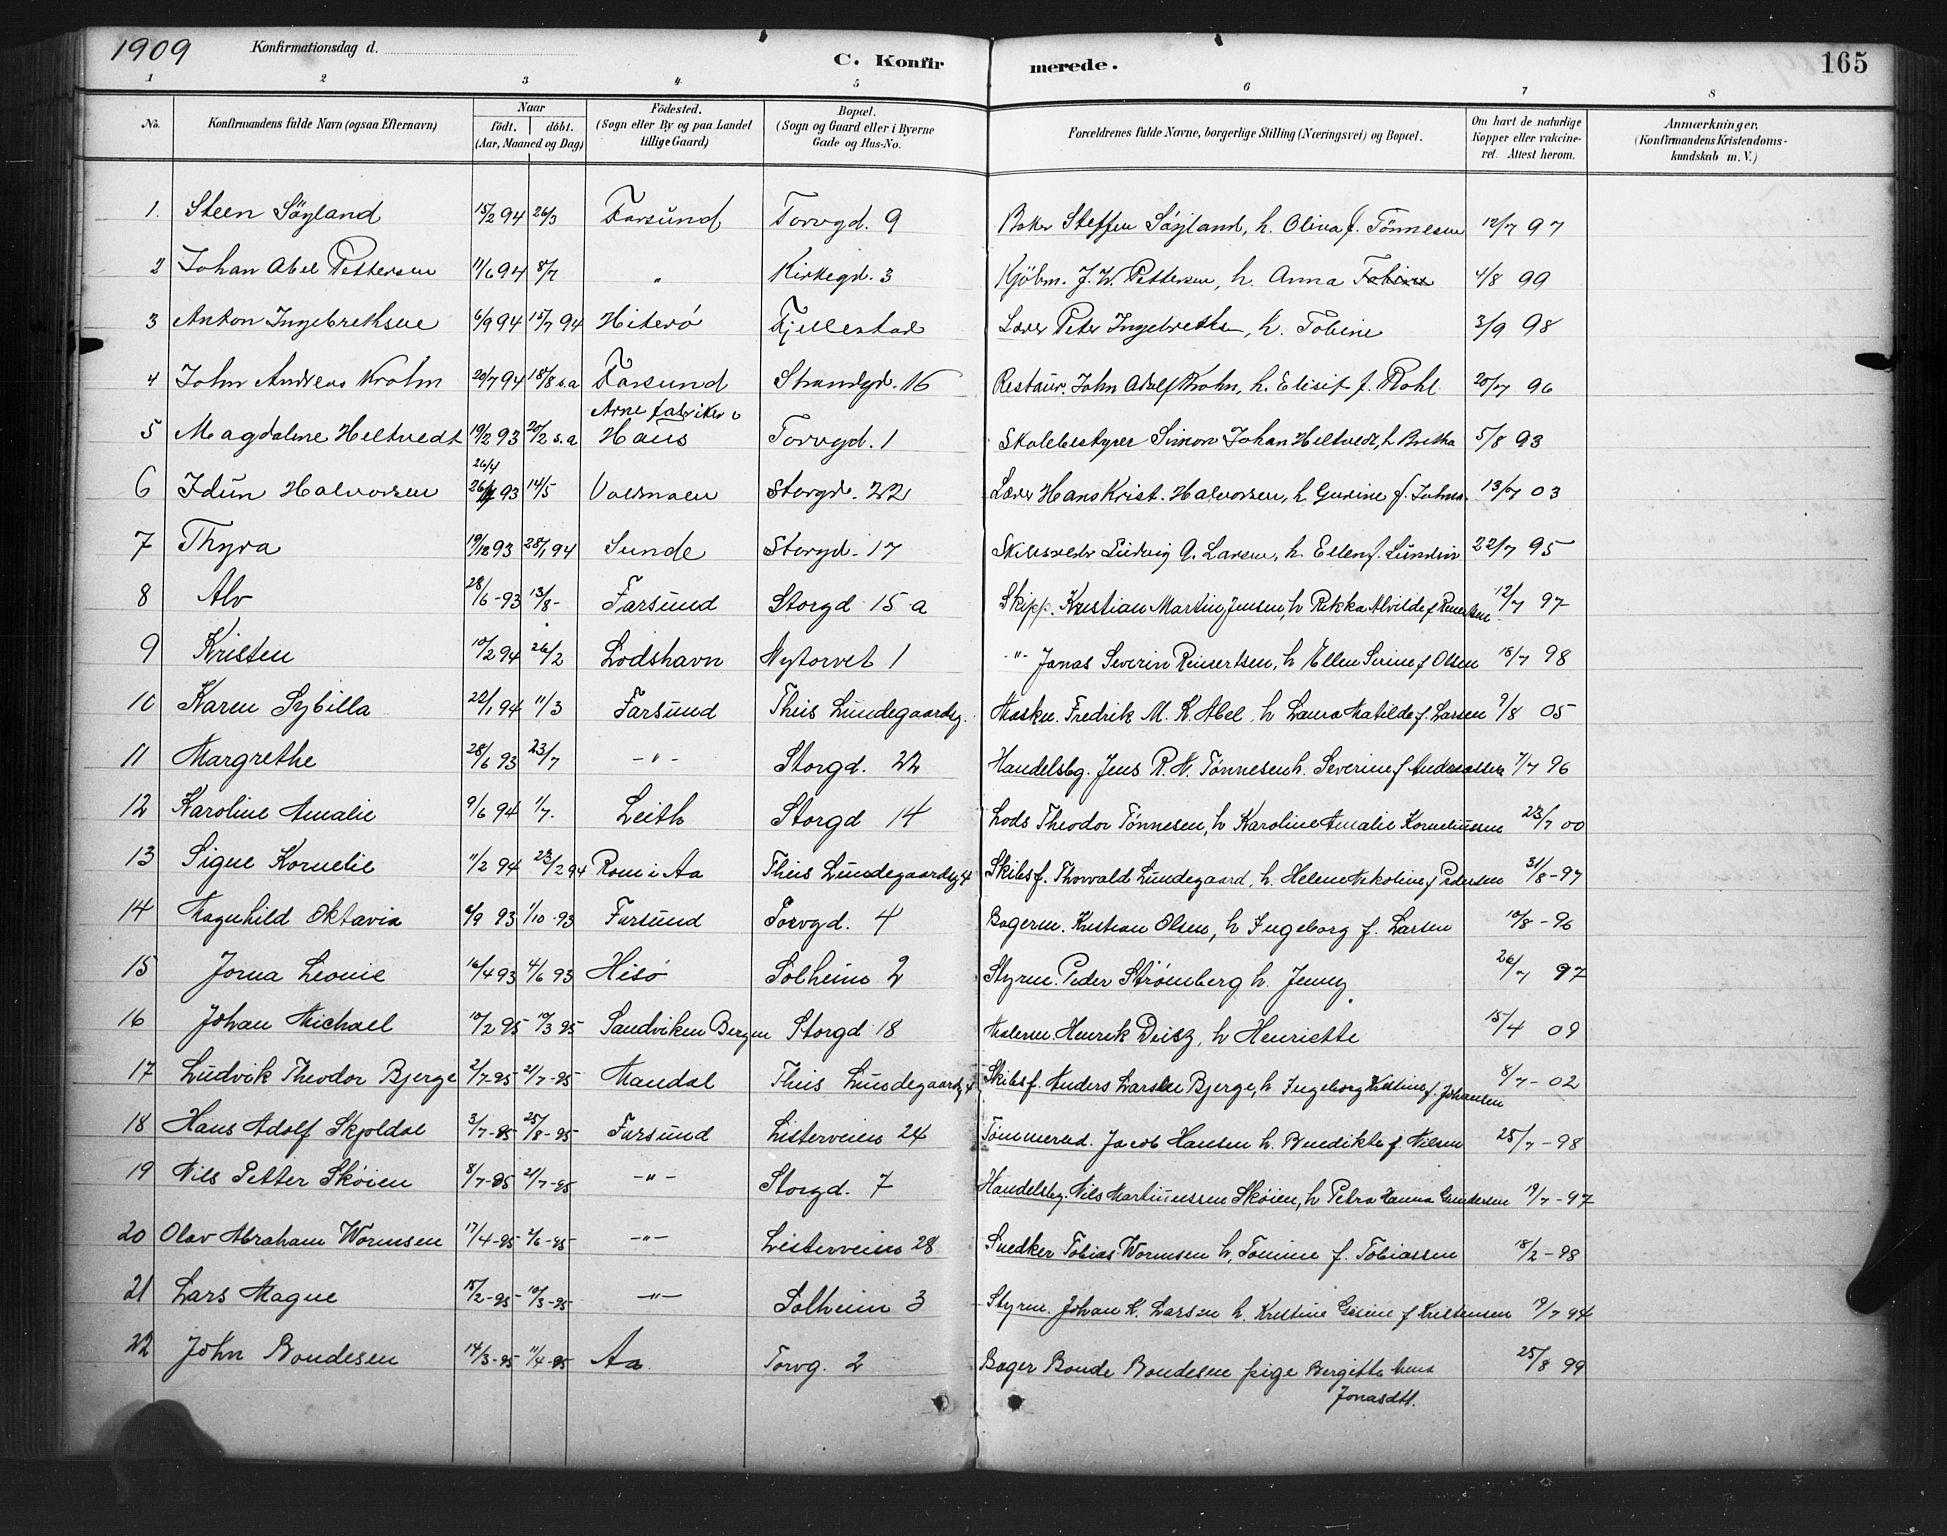 1909 Konfirmationsdag d. C. Konfirmerede. 165
1 2 3 4 5 6 7 8
No. Konfirmandens fulde Navn (ogsaa Efternavn) Naar födt. döbt. (Aar, Maaned og Dag) Födested. (Sogn eller By og paa Landet tillige Gaard) Bopæl. (Sogn og Gaard eller i Byerne Gade og Hus-No. Forældrenes fulde Navne, borgerlige Stilling (Næringsvei) og Bopæl. Om havt de naturlige Kopper eller vakcineret. Attest herom. Anmærkninger. (Konfirmandens Kristendomskundskab m. V.)
1. Steen Söyland 15/2 94 26/3 Farsund Torvgd. 9 Baker Steffen Söyland, h. Olina f. Tönnesen 12/7 97
2 Johan Abel Pettersen 11/6 94 8/7 " Kirkegd. 3 Kjöbm. J. W. Pettersen, h. Anna 4/8 99
3 Anton Ingebrethsen 6/9 94 15/7 94 Hiterö Fjellestad Lærer Peter Ingebreths, h. Tobine 3/9 98
4 John Andreas Krohn 20/7 94 18/8 s.a Farsund Strandgd. 16 Restaur. John Adolf Krohn, h. Elisif f. Dahl 20/7 96
5 Magdalene Heltvedt 19/2 93 20/2 s.a Arne fabriker i Haus Torvgd. 1 Skolebestyrer Simon Johan Heltvedt, h Bretha 5/8 93
6 Idun Halvorsen 26/4 26/4 93 14/5 Valsmoen Storgd. 22 Lærer Hans Krist. Halvorsen, h. Gurine f. Johns. 13/7 03
7 Thyra 19/12 93 28/1 94 Sunde Storgd. 17 Ludvig A. Larsen, h. Ellen f. Lundin 22/7 95
8 Alv 28/6 - 93 13/8 - Farsund Storgd 15 a Skipp. Kristian Martin Jensen, h Rikka Alvilde f Reinertsen 12/7 97
9 Kristen 10/2 94 26/2 Lodshavn Nytorvet 1 -"- Jonas Severin Reinertsen, h Ellen Serine f Olsen 18/7 98
10 Karen Sybilla 22/1 94 11/3 Farsund Theis Lundegaardsg. Maskn. Fredrik M. K. Abel, h Laura Matilde f. Larsen 9/8 05
11 Margrethe 28/6 93 23/7 -"- Storgd. 22 Handelsbg. Jens R. N. Tönnesen h. Severine f Andreassen 7/7 96
12 Karoline Amalie 9/6 94 1/7. Leith Storgd 14 Lods Theodor Tönnesen, h Karoline Amalie Korneliussen 23/7 00
13 Signe Kornelie 11/2 94 23/2 94 Rom i Aa Theis Lundegaardsg 4 Skibsf. Thorvald Lundegaard, h. Helene Nikoline f Pedersen 31/8 - 97
14 Magnhild Oktavia 6/9 93 1/10 - 93 Farsund Torvgd. 4 Bagerm. Kristian Olsen, h Ingeborg f. Larsen 10/8 - 96
15 Jorna Leonie 16/4 93 4/6 93 Hisö Solheim 2 Styrm. Peder Strömberg h. Jenny 26/7 97
16 Johan Michael 10/2 95 10/3 95 Sandviken Bergen Storgd 18 Malerm. Henrik Deisz, h Henriette 15/4 09
17 Ludvik Theodor Bjerge 2/7-95 21/7-95 Mandal Theis Lundegaardsg 4 Skibsf. Anders Larsen Bjerge, h Ingeborg Kristine f. Johansen 8/7 - 02
18 Hans Adolf Skjoldal 3/7-95 25/8-95 Farsund Listerveien 24 Tömmermd. Jacob Hansen h. Benedikte f Nilsen 25/7 - 98
19 Nils Petter Sköien 8/7-95 21/7-95 -"- Storgd. 7 Handelsbg. Nils Martinussen Sköien, h Petra Hanna Gundersen 19/7 - 97
20 Olav Abraham Wormsen 17/4-95 2/6-95 -"- Listerveien 28 Snedker Tobias Wormsen h, Tomine f. Tobiassen 18/2 - 98
21 Lars Magne 15/2-95 10/3-95 -"- Solheim 3 Styrm. Johan K. Larsen h. Kristine Gusine f Kristensen 19/7 94
22 John Bondesen 14/3-95 11/4-95 Aa Torvg. 2 Bager Bonde Bondesen pige Bergitte
Jonasdtt. 25/8 99